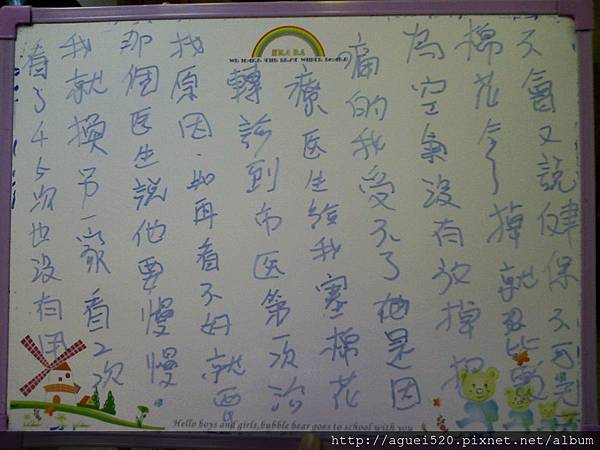 看了45次也沒有用
我就換另一家看2次
那個医生說他要慢慢
找原因.如再看不好就要
轉診到市医第一次治
療医生給我塞棉花
痛的我受不了他是因
為空氣沒有放掉把
棉花 了掉就 比較
不氣又說健保不可是
WE MAKE THE BEST WHITE BOARD
Hello boys and girls, bubble bear goes to school with you
http://aguei520.pixnet.net/album